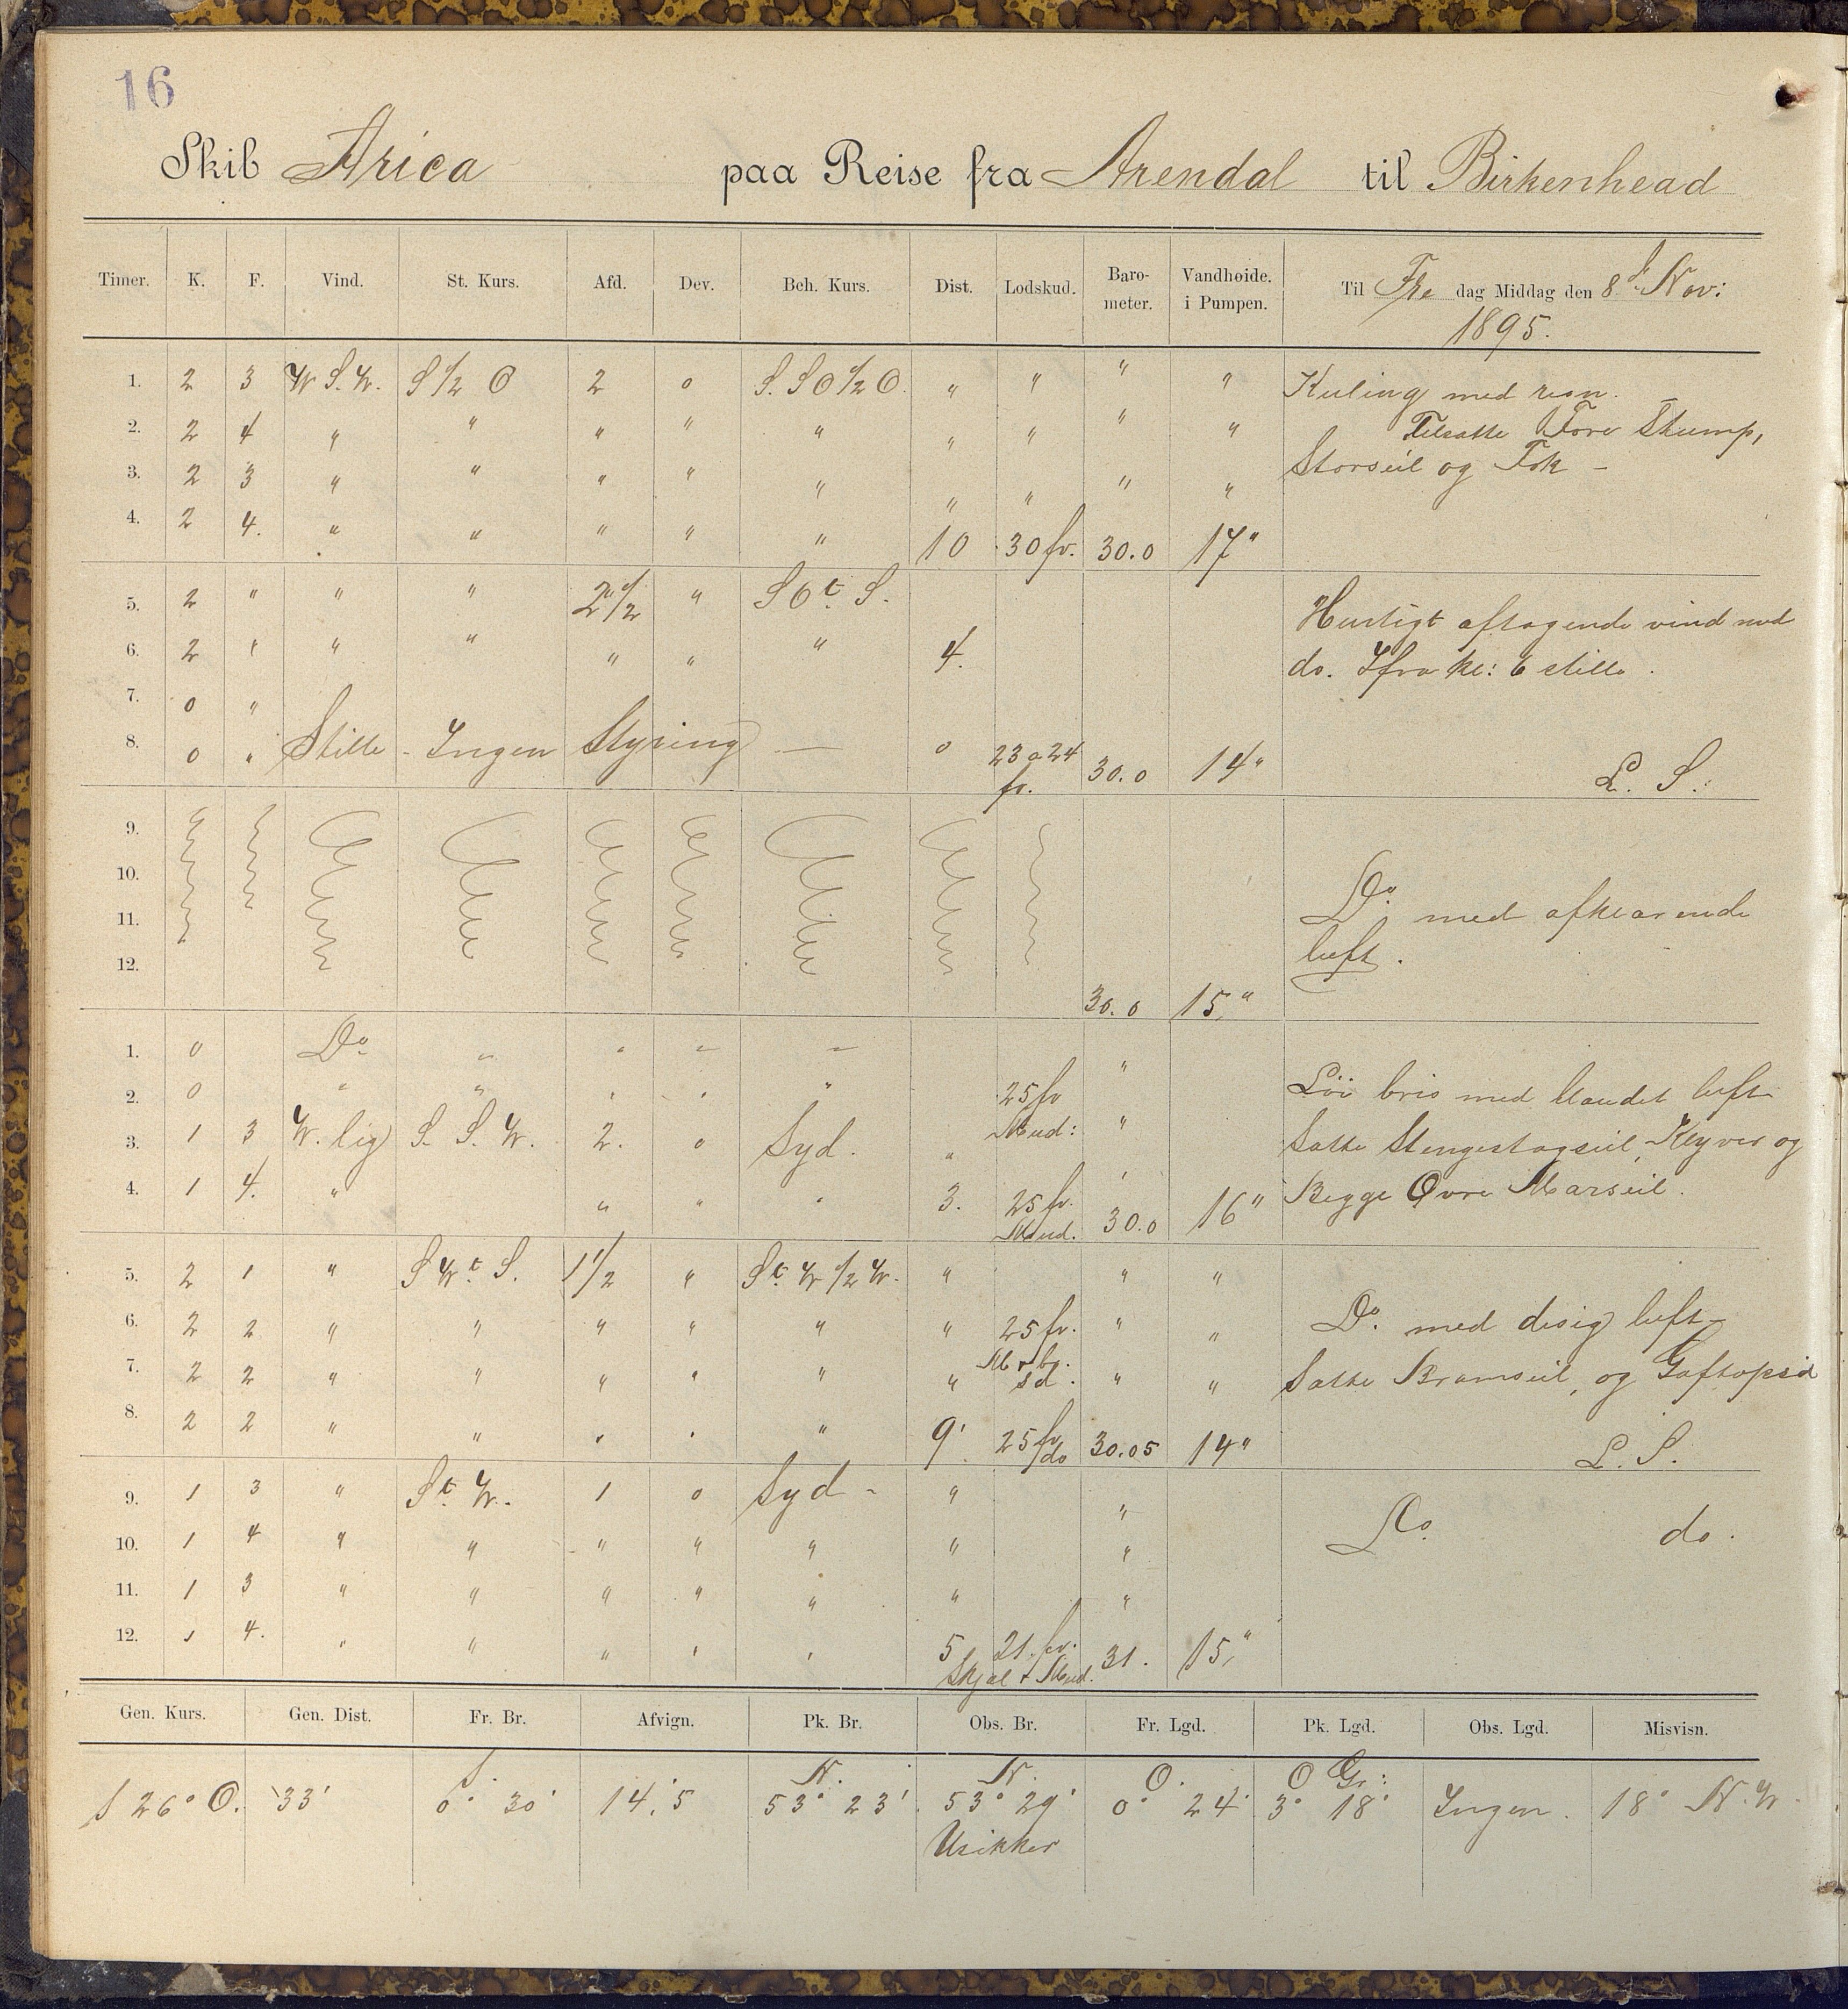 16
Skib Arica paa Reise fra Arendal til Birkenhead
Timer. K. F. Vind. St. Kurs. Afd. Dev. Beh. Kurs. Dist. Lodskud. Baro- meter. Vandhøide. i Pumpen. Til Fre dag Middag den 8de Nov: 1895.
1. 2 3 W S. W. S 1/2 O 2 0 S. S O 1/2 O. " " " " Kuling med regn.
2. 2 4 " " " " " " " " " Tilsatte Fore Stump,
3. 2 3 " " " " " " " " " Storseil og Fok -
4. 2 4. " " " " " 10 30 fv. 30.0 17"
5. 2 " " " 2 1/2 " S O t. S. Hurtigt aftagende vind med
6. 2 " " " " " 4. do. Ifra kl: 6 stille.
7. 0 "
8. 0 " Stille - Ingen Styring — 0 23 a 24 fv. 30.0 14" L. S.:
9.
10. Do. med afklarende
11. luft.
12. 30.0 15"
1. 0 Do " " " " "
2. 0 " " " " " 25 fv Löi bris med blandet luft
3. 1 3 W. lig S. S. W. 2. 0 Syd. " Mud: " Satte Stengestagseil, Klyver og
4. 1 4. " " " " 3. 25 fv. Mud. 30.0 16" Begge Øvre Marseil.
5. 2 1 " S W t. S. 1 1/2 " S t. W 1/2 W. " " "
6. 2 2 " " " " " " 25 fv. " " Do. med disig luft -
7. 2 2 " " " " " " M + br. sd. " " Satte Bramseil, og Gaftopseil
8. 2 2 " " " " " 9' 25 fv do 30.05 14" L. S.
9. 1 3 " S t. W. 1 0 Syd - " " Do. do.
10. 1 4 " " " " " " "
11. 1 3 " " " " " " "
12. 1 4. " " " " " 5 21. fv. Skjæl + Mud. 31. 15"
Gen. Kurs. Gen. Dist. Fr. Br. Afvign. Pk. Br. Obs. Br. Fr. Lgd. Pk. Lgd. Obs. Lgd. Misvisn.
S. N. N. O. O Gr:
S 26° O. 33' 0° 30' 14'.5 53° 23' 53° 29' 0° 24' 3° 18' Ingen. 18° N. W.
Usikker